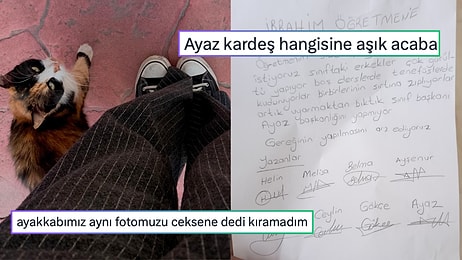 Ayaz kardeş hangisine aşık acaba
ayakkabımız aynı fotomuzu ceksene dedi kıramadım
İBRAHİM ÖĞRETMENE
istiyoruz sınıftaki erkekler çok
yapıyor bazı derslerde teneffüslerde
kuduruyorlar birbirlerinin sırtına zıplıyorlar
artık uyarmaktan bıktık sınıf başkanı
Ayaz başkanlığını yapmıyor
Gereğinin yapılmasını arz ediyoruz
Yazanlar
Helin Melisa Belma Ayşenur
Ceylin Gökçe Ayaz
Gökçe